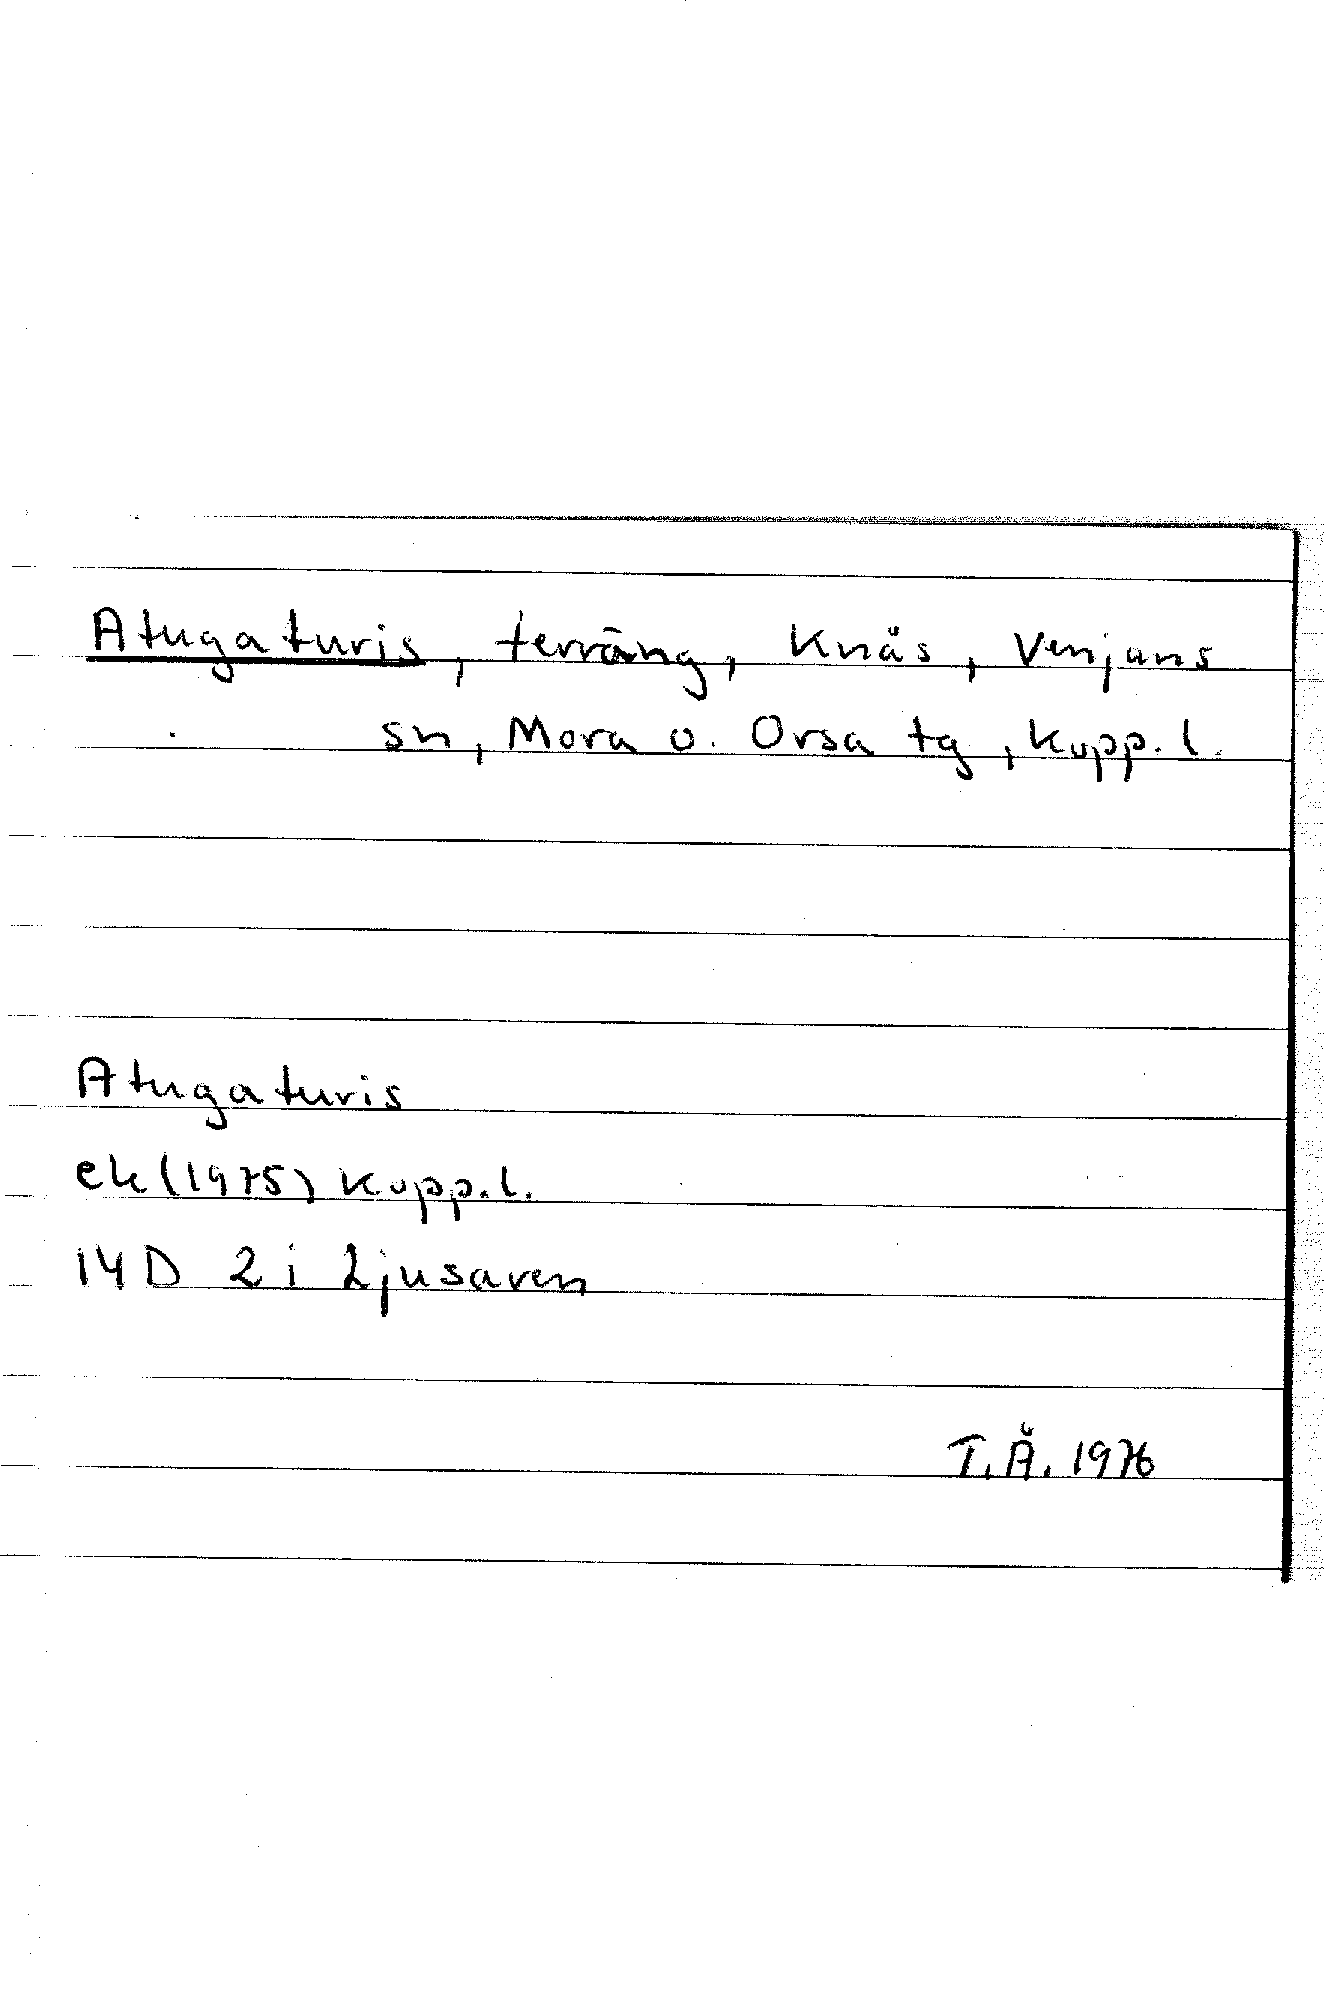 Atugaturis, terräng, Knås, Venjans
sn, Mora o. Orsa tg, Kopp. l.
Atugaturis
ek (1975) Kopp. l.
14D 2i Ljusaven
T.Å. 1976